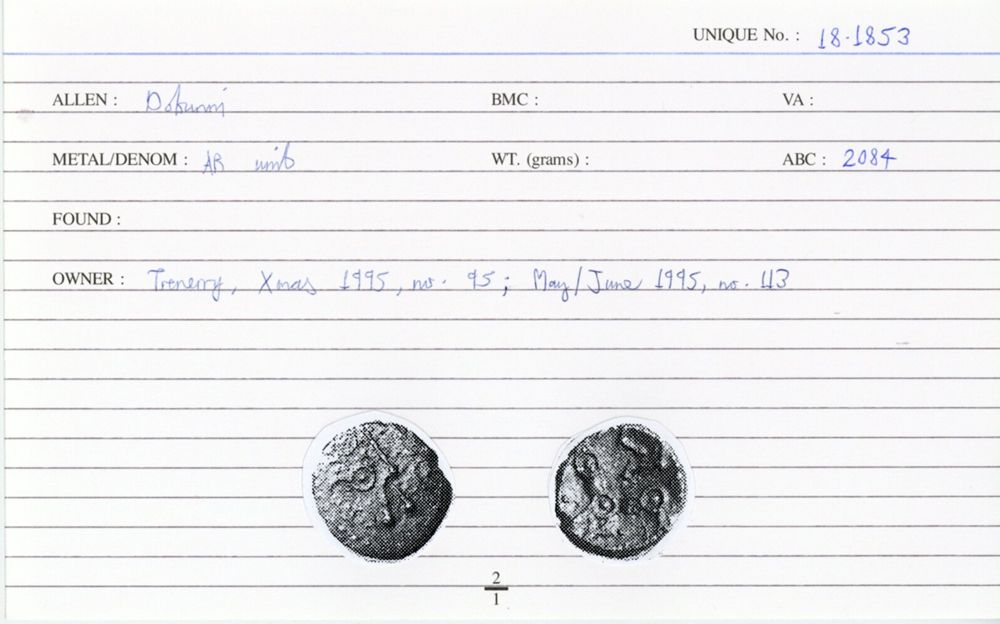 UNIQUE No. : 18.1853
ALLEN : Dobunni BMC : VA :
METAL/DENOM : AR unit WT. (grams) : ABC : 2084
FOUND :
OWNER : Trenerry, Xmas 1995, no. 95; May/June 1995, no. 43
2
1